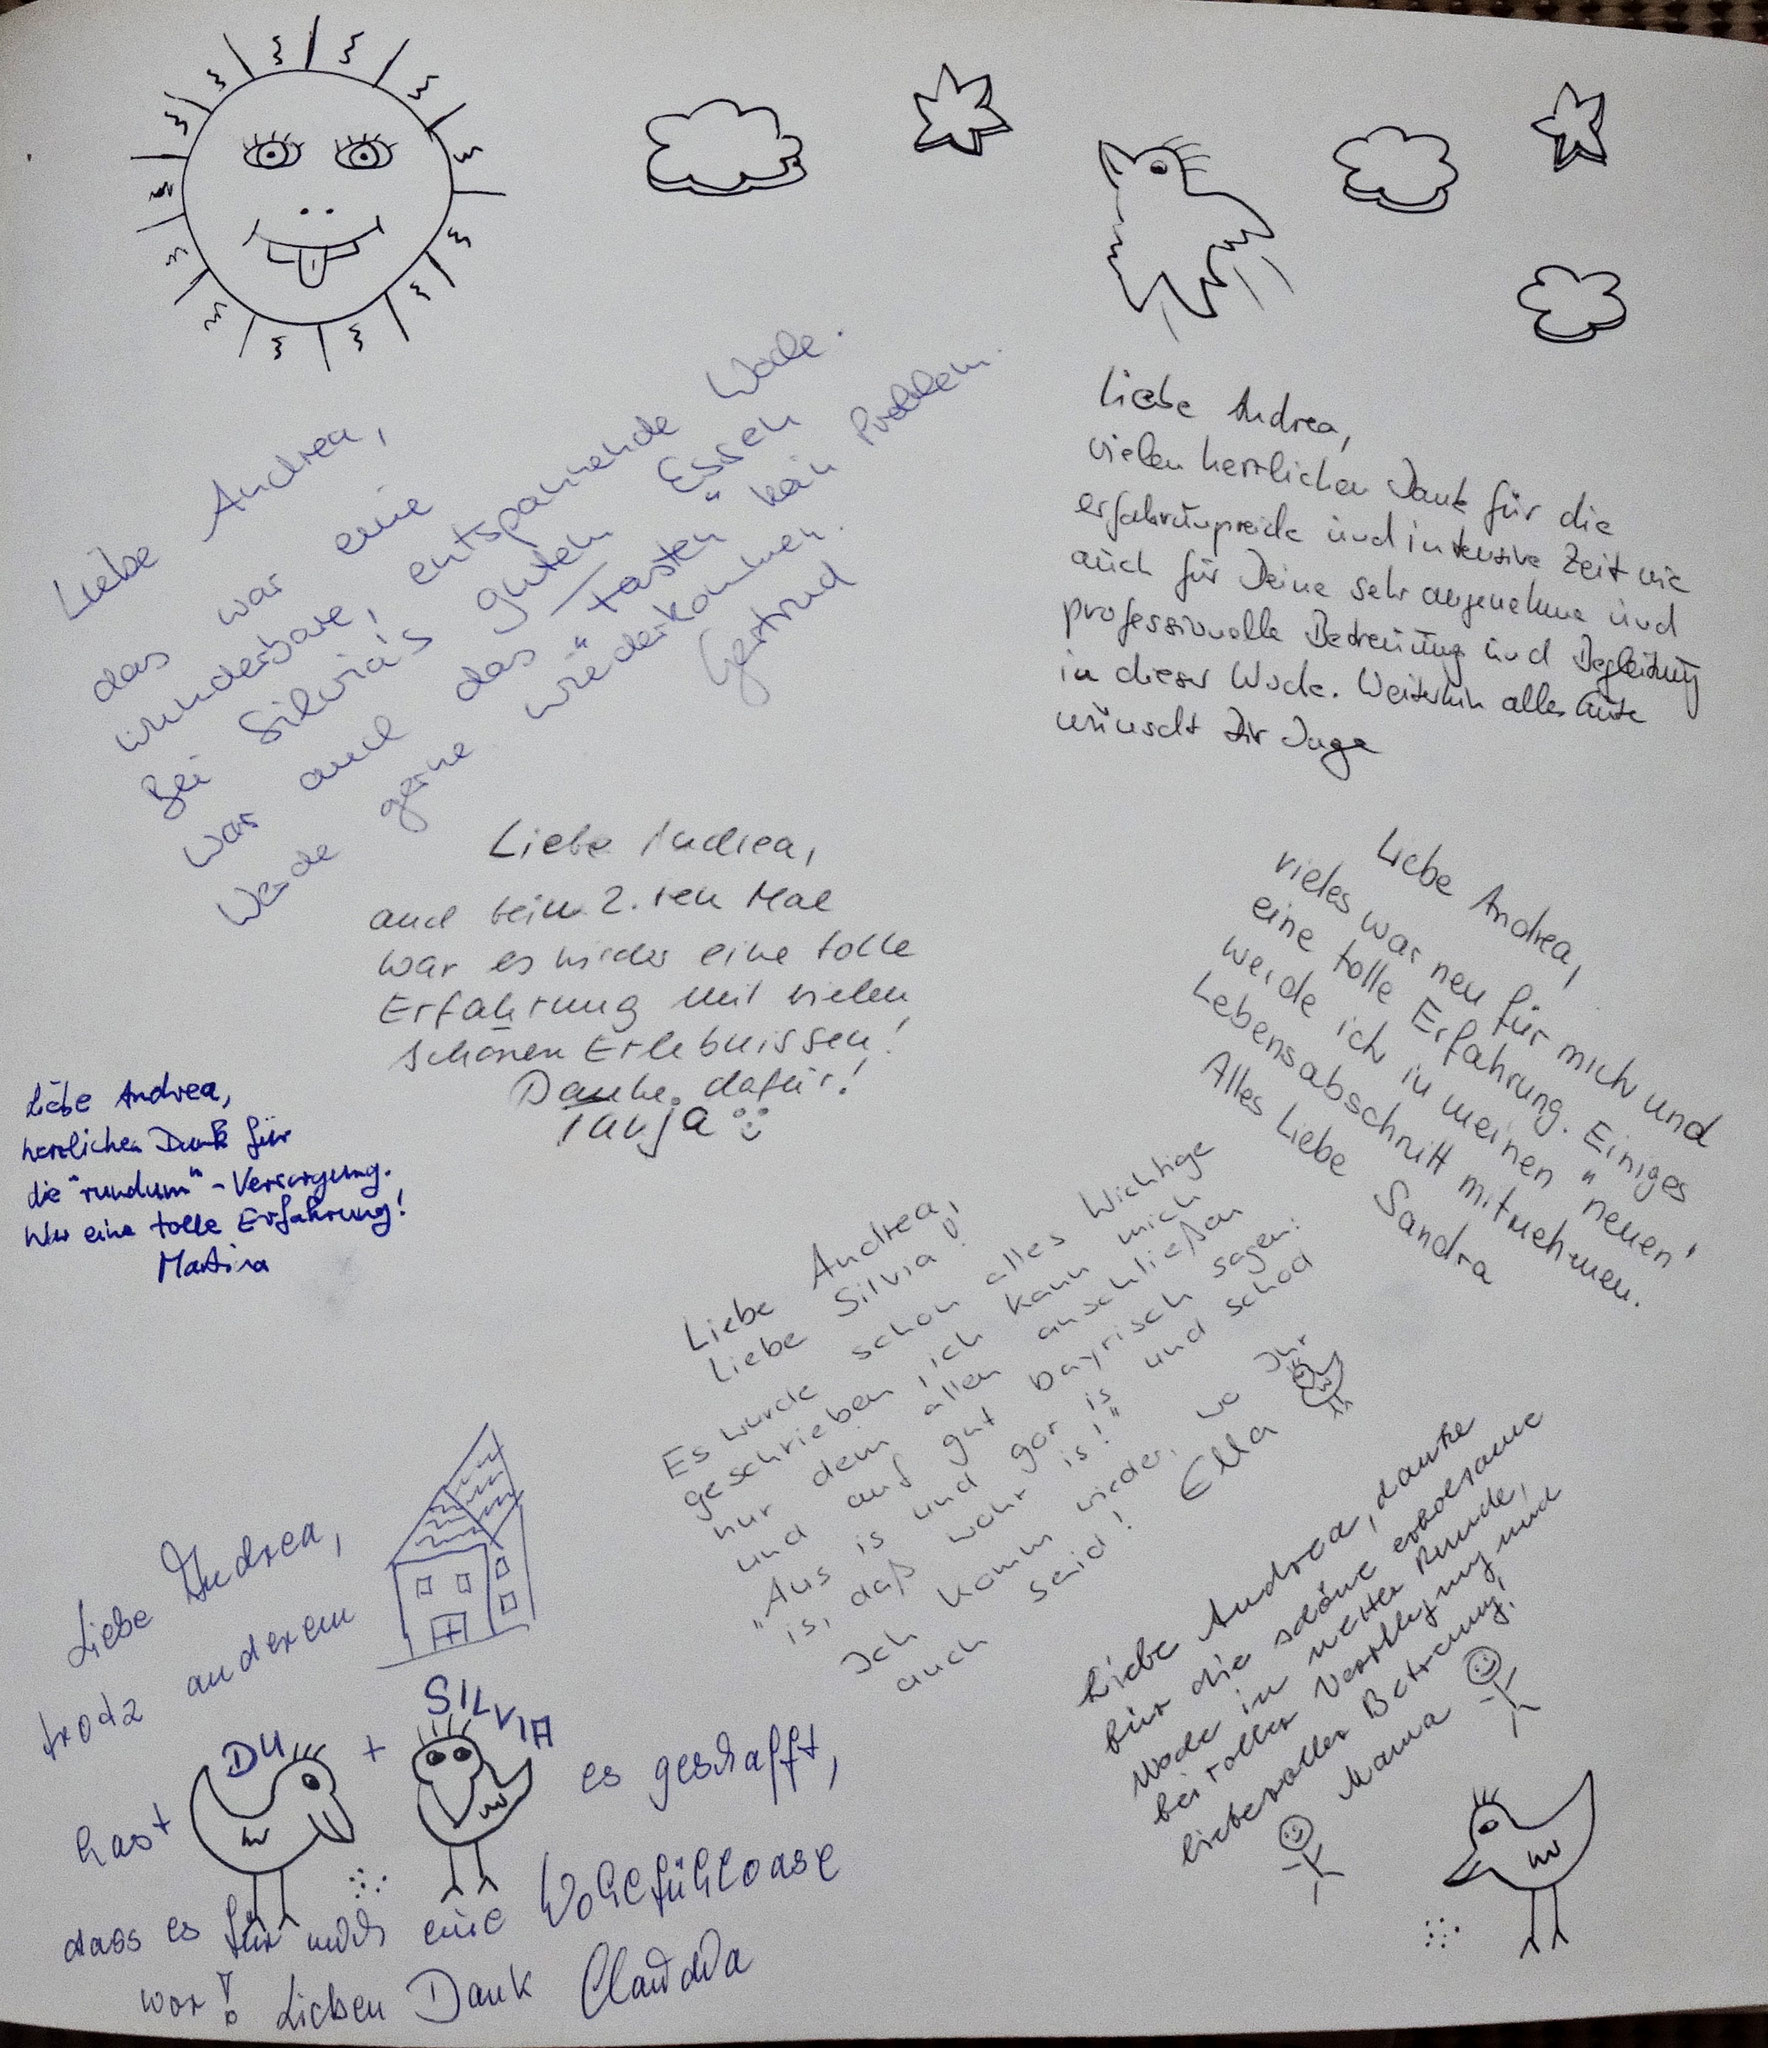 Liebe Andrea,
das war eine
wunderbare, entspannende Woche.
Bei Silvia's gutem Essen
war auch das "fasten" kein Problem.
Werde gerne wiederkommen.
Gertrud
Liebe Andrea,
vielen herzlichen Dank für die
erfahrungsreiche und intensive Zeit wie
auch für Deine sehr angenehme und
professionelle Betreuung und Begleitung
in dieser Woche. Weiterhin alles Gute
wünscht Dir Inge
Liebe Andrea,
auch beim 2.ten Mal
war es wieder eine tolle
Erfahrung mit vielen
schönen Erlebnissen!
Danke dafür!
Tanja
Liebe Andrea,
vieles war neu für mich und
eine tolle Erfahrung. Einiges
werde ich in meinen "neuen"
Lebensabschnitt mitnehmen.
Alles Liebe Sandra
Liebe Andrea,
herzlichen Dank für
die "rundum" - Versorgung.
War eine tolle Erfahrung!
Martina
Liebe Andrea,
Liebe Silvia!
Es wurde schon alles Wichtige
geschrieben, ich kann mich
nur dem allen anschließen
und auf gut bayrisch sagen:
"Aus is und gor is und schod
is, daß wohr is!"
Ich komm wieder, wo Ihr
auch seid! Ella
Liebe Andrea,
trotz anderem
hast DU + SILVIA es geschafft,
dass es für mich eine Wohlfühloase
war! Lieben Dank Claudia
Liebe Andrea, danke
für die schöne erholsame
Woche in netter Runde,
bei toller Verpflegung und
liebevoller Betreuung!